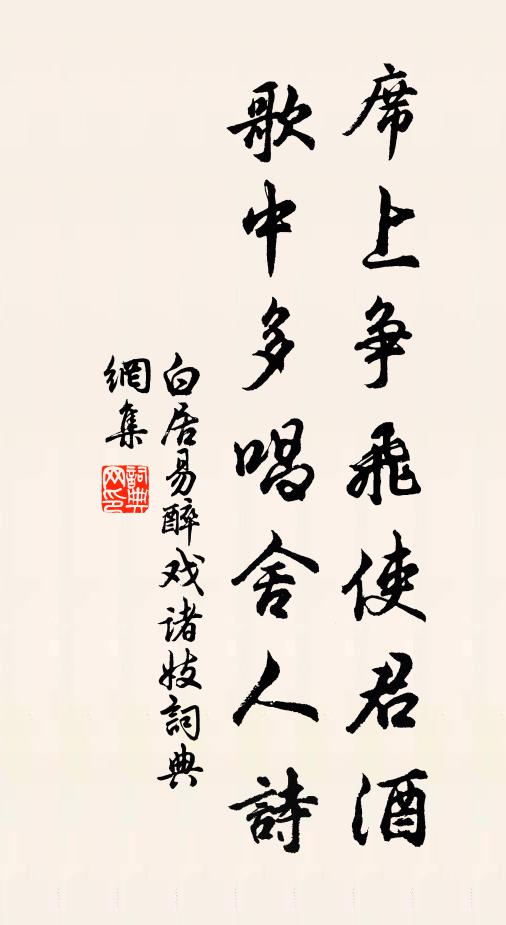 席上争飛使君酒
歌中多唱舍人詩
白居易醉戏诸妓詞典
網集
詞典網印